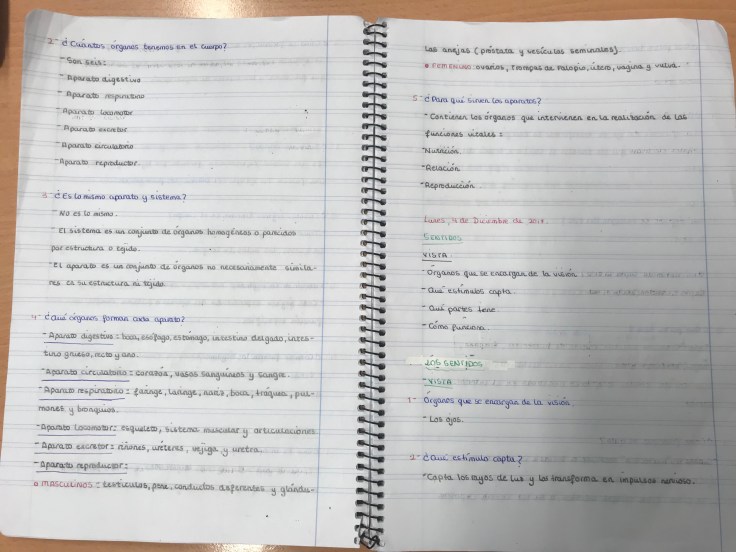 2- ¿Cuántos órganos tenemos en el cuerpo?
- Son seis:
- Aparato digestivo
- Aparato respiratorio
- Aparato locomotor
- Aparato excretor
- Aparato circulatorio
- Aparato reproductor.
3- ¿Es lo mismo aparato y sistema?
- No es lo mismo.
- El sistema es un conjunto de órganos homogéneos o parecidos
por estructura o tejido.
- El aparato es un conjunto de órganos no necesariamente simila-
res es su estructura ni tejido.
4- ¿Qué órganos forman cada aparato?
- Aparato digestivo: boca, esófago, estómago, intestino delgado, intes-
tino grueso, recto y ano.
- Aparato circulatorio: corazón, vasos sanguíneos y sangre.
- Aparato respiratorio: faringe, laringe, nariz, boca, tráquea, pul-
mones y bronquios.
- Aparato locomotor: esqueleto, sistema muscular y articulaciones
- Aparato excretor: riñones, uréteres, vejiga y uretra.
- Aparato reproductor:
MASCULINOS: testículos, pene, conductos deferentes y glándu-
las anejas (próstata y vesículas seminales).
FEMENINO: ovarios, trompas de Falopio, útero, vagina y vulva.
5- ¿Para qué sirven los aparatos?
- Contienen los órganos que intervienen en la realización de las
funciones vitales:
- Nutrición
- Relación
- Reproducción
Lunes, 4 de Diciembre de 2017.
SENTIDOS
VISTA
- Órganos que se encargan de la visión
- Qué estímulos capta.
- Qué partes tiene.
- Cómo funciona.
LOS SENTIDOS
- VISTA
1- Órganos que se encargan de la visión
- Los ojos.
2- ¿Qué estímulo capta?
- Capta los rayos de luz y los transforma en impulsos nervioso.